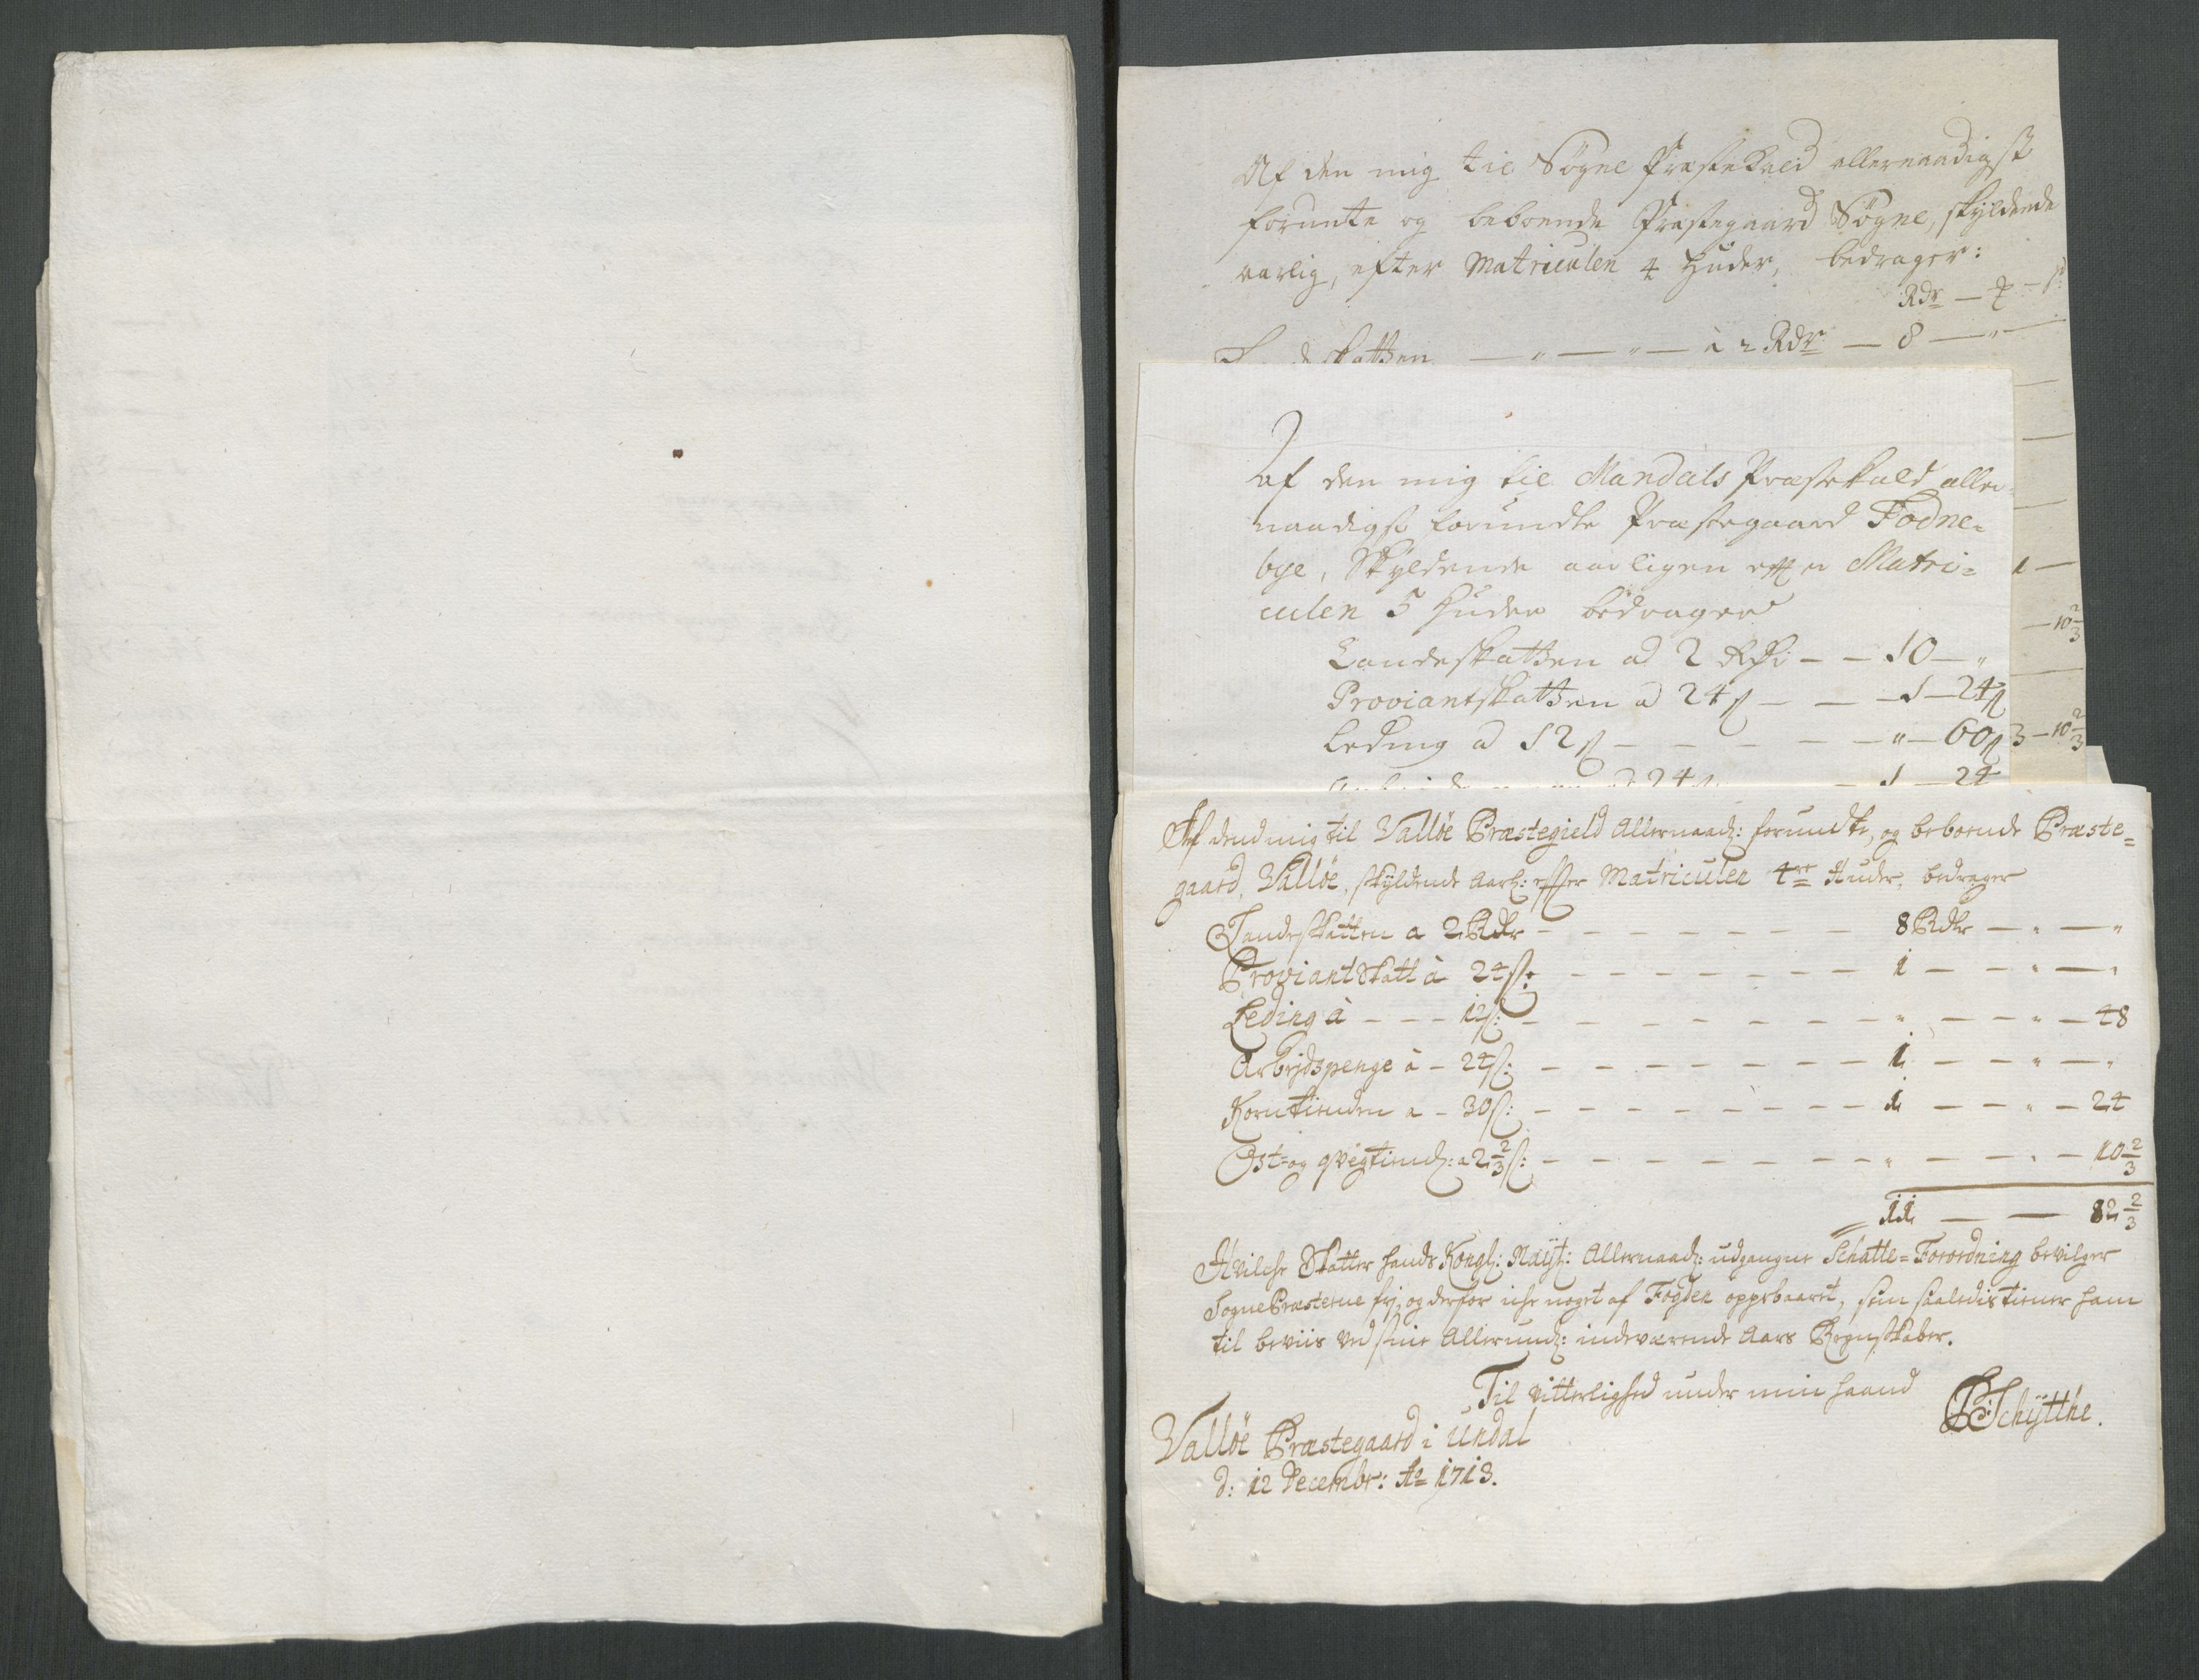 Af den mig til Søgne Præstekald allernaadigst
forunte og beboende Præstegaard Søgne, skyldende
aarlig, efter Matriculen 4 Huder, bedrager:
Rdr – ß
skatten — „ — „ — à 2 Rdr — 8 — „
1 —
— 10 2/3
3 — 10 2/3
Af den mig til Mandals Præstekald aller-
naadigst forundte Præstegaard Fodne=
bye, Skyldende aarligen effter Matri=
culen 5 Huder bedrager
Landeskatten ad 2 Rdr – – 10 — „
Proviantskatten a 24 ß – – – 1 — 24 ß
Leding a 12 ß – – – – – – „ — 60 ß
24 – 1 — 24
Af dend mig til Valløe Præstegield Allernaad: forundte, og beboende Præste=
gaard, Valløe, skyldende Aarl: effter Matriculen 4re Huder, bedrager
Landeskatten a 2 Rdr – – – – – – – 8 Rdr — „ — „
Proviant Skatt à 24 ß: – – – – – – – 1 — – „ — „
Leding à – – – 12 ß: – – – – – – – „ — – „ – 48
Arbejdspenge à – 24 ß: – – – – – – – 1 — – „ — „
Korntienden a – 30 ß: – – – – – – – 1 — – „ – 24
Ost= og qvegtiend: a 2 2/3 ß: – – – – – – – „ — – „ – 10 2/3
11 — — 82 2/3
Hvilche Skatter hands Kongl: Mayt: Allernaad: udgangne Schatte=Forordning bevilger
SognePræsterne frj, og derfor iche noget af Fogden oppebaaret, som saaledis tiener ham
til beviis ved sine Allerund: indeværende Aars Regnskaber.
Til vitterlighed under min haand
Valløe Præstegaard i Undal
d: 12 Decembr: Ao 1713.
Schÿtthe.